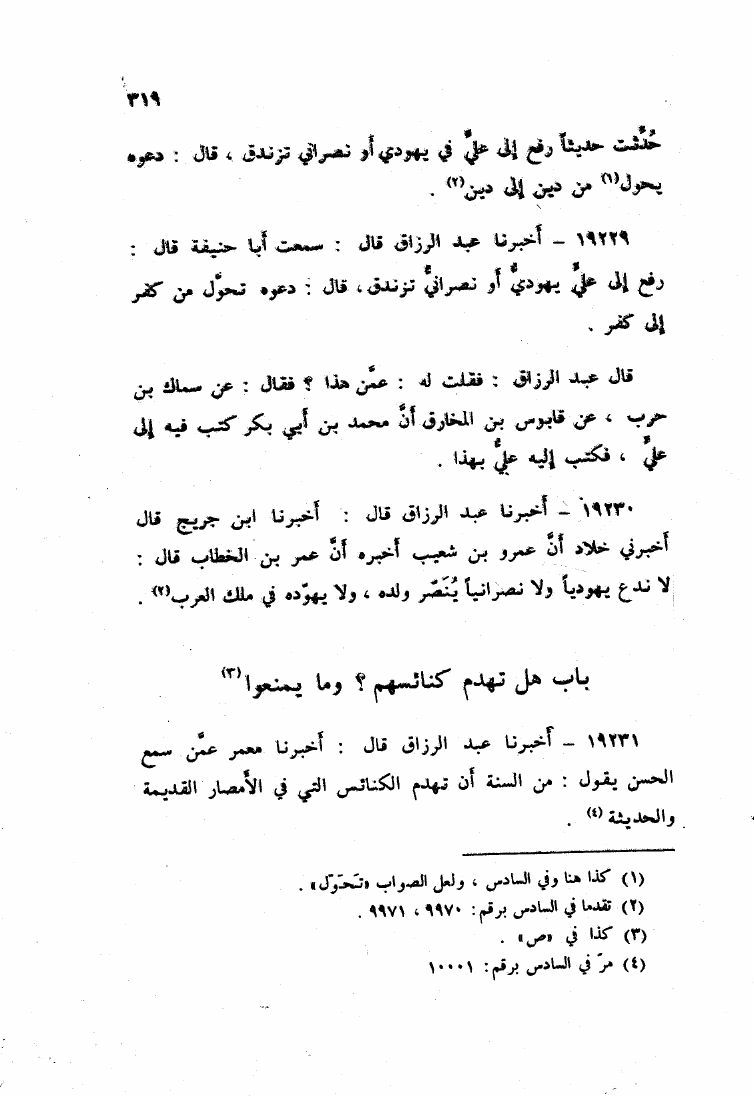 ٣١٩
حُدِّثت حديثاً رفع إلى عليٍّ في يهودي أو نصراني تزندق ، قال : دعوه
يحول(١) من دين إلى دين(٢) .
١٩٢٢٩ – أخبرنا عبد الرزاق قال : سمعت أبا حنيفة قال :
رفع إلى عليٍّ يهوديٌّ أو نصرانيٌّ تزندق ، قال : دعوه تحوَّل من كفر
إلى كفر .
قال عبد الرزاق : فقلت له : عمَّن هذا ؟ فقال : عن سماك بن
حرب ، عن قابوس بن المخارق أنَّ محمد بن أبي بكر كتب فيه إلى
عليٍّ ، فكتب إليه عليٌّ بهذا .
١٩٢٣٠ – أخبرنا عبد الرزاق قال : أخبرنا ابن جريج قال
أخبرني خلاد أنَّ عمرو بن شعيب أخبره أنَّ عمر بن الخطاب قال :
لا ندع يهودياً ولا نصرانياً يُنَصّر ولده ، ولا يهوّده في ملك العرب(٢) .
باب هل تهدم كنائسهم ؟ وما يمنعوا(٣)
١٩٢٣١ – أخبرنا عبد الرزاق قال : أخبرنا معمر عمَّن سمع
الحسن يقول : من السنة أن تهدم الكنائس التي في الأمصار القديمة
والحديثة(٤) .
(١) كذا هنا وفي السادس ، ولعل الصواب «تَحَوّل» .
(٢) تقدما في السادس برقم: ٩٩٧٠ ، ٩٩٧١ .
(٣) كذا في «ص» .
(٤) مرّ في السادس برقم: ١٠٠٠١